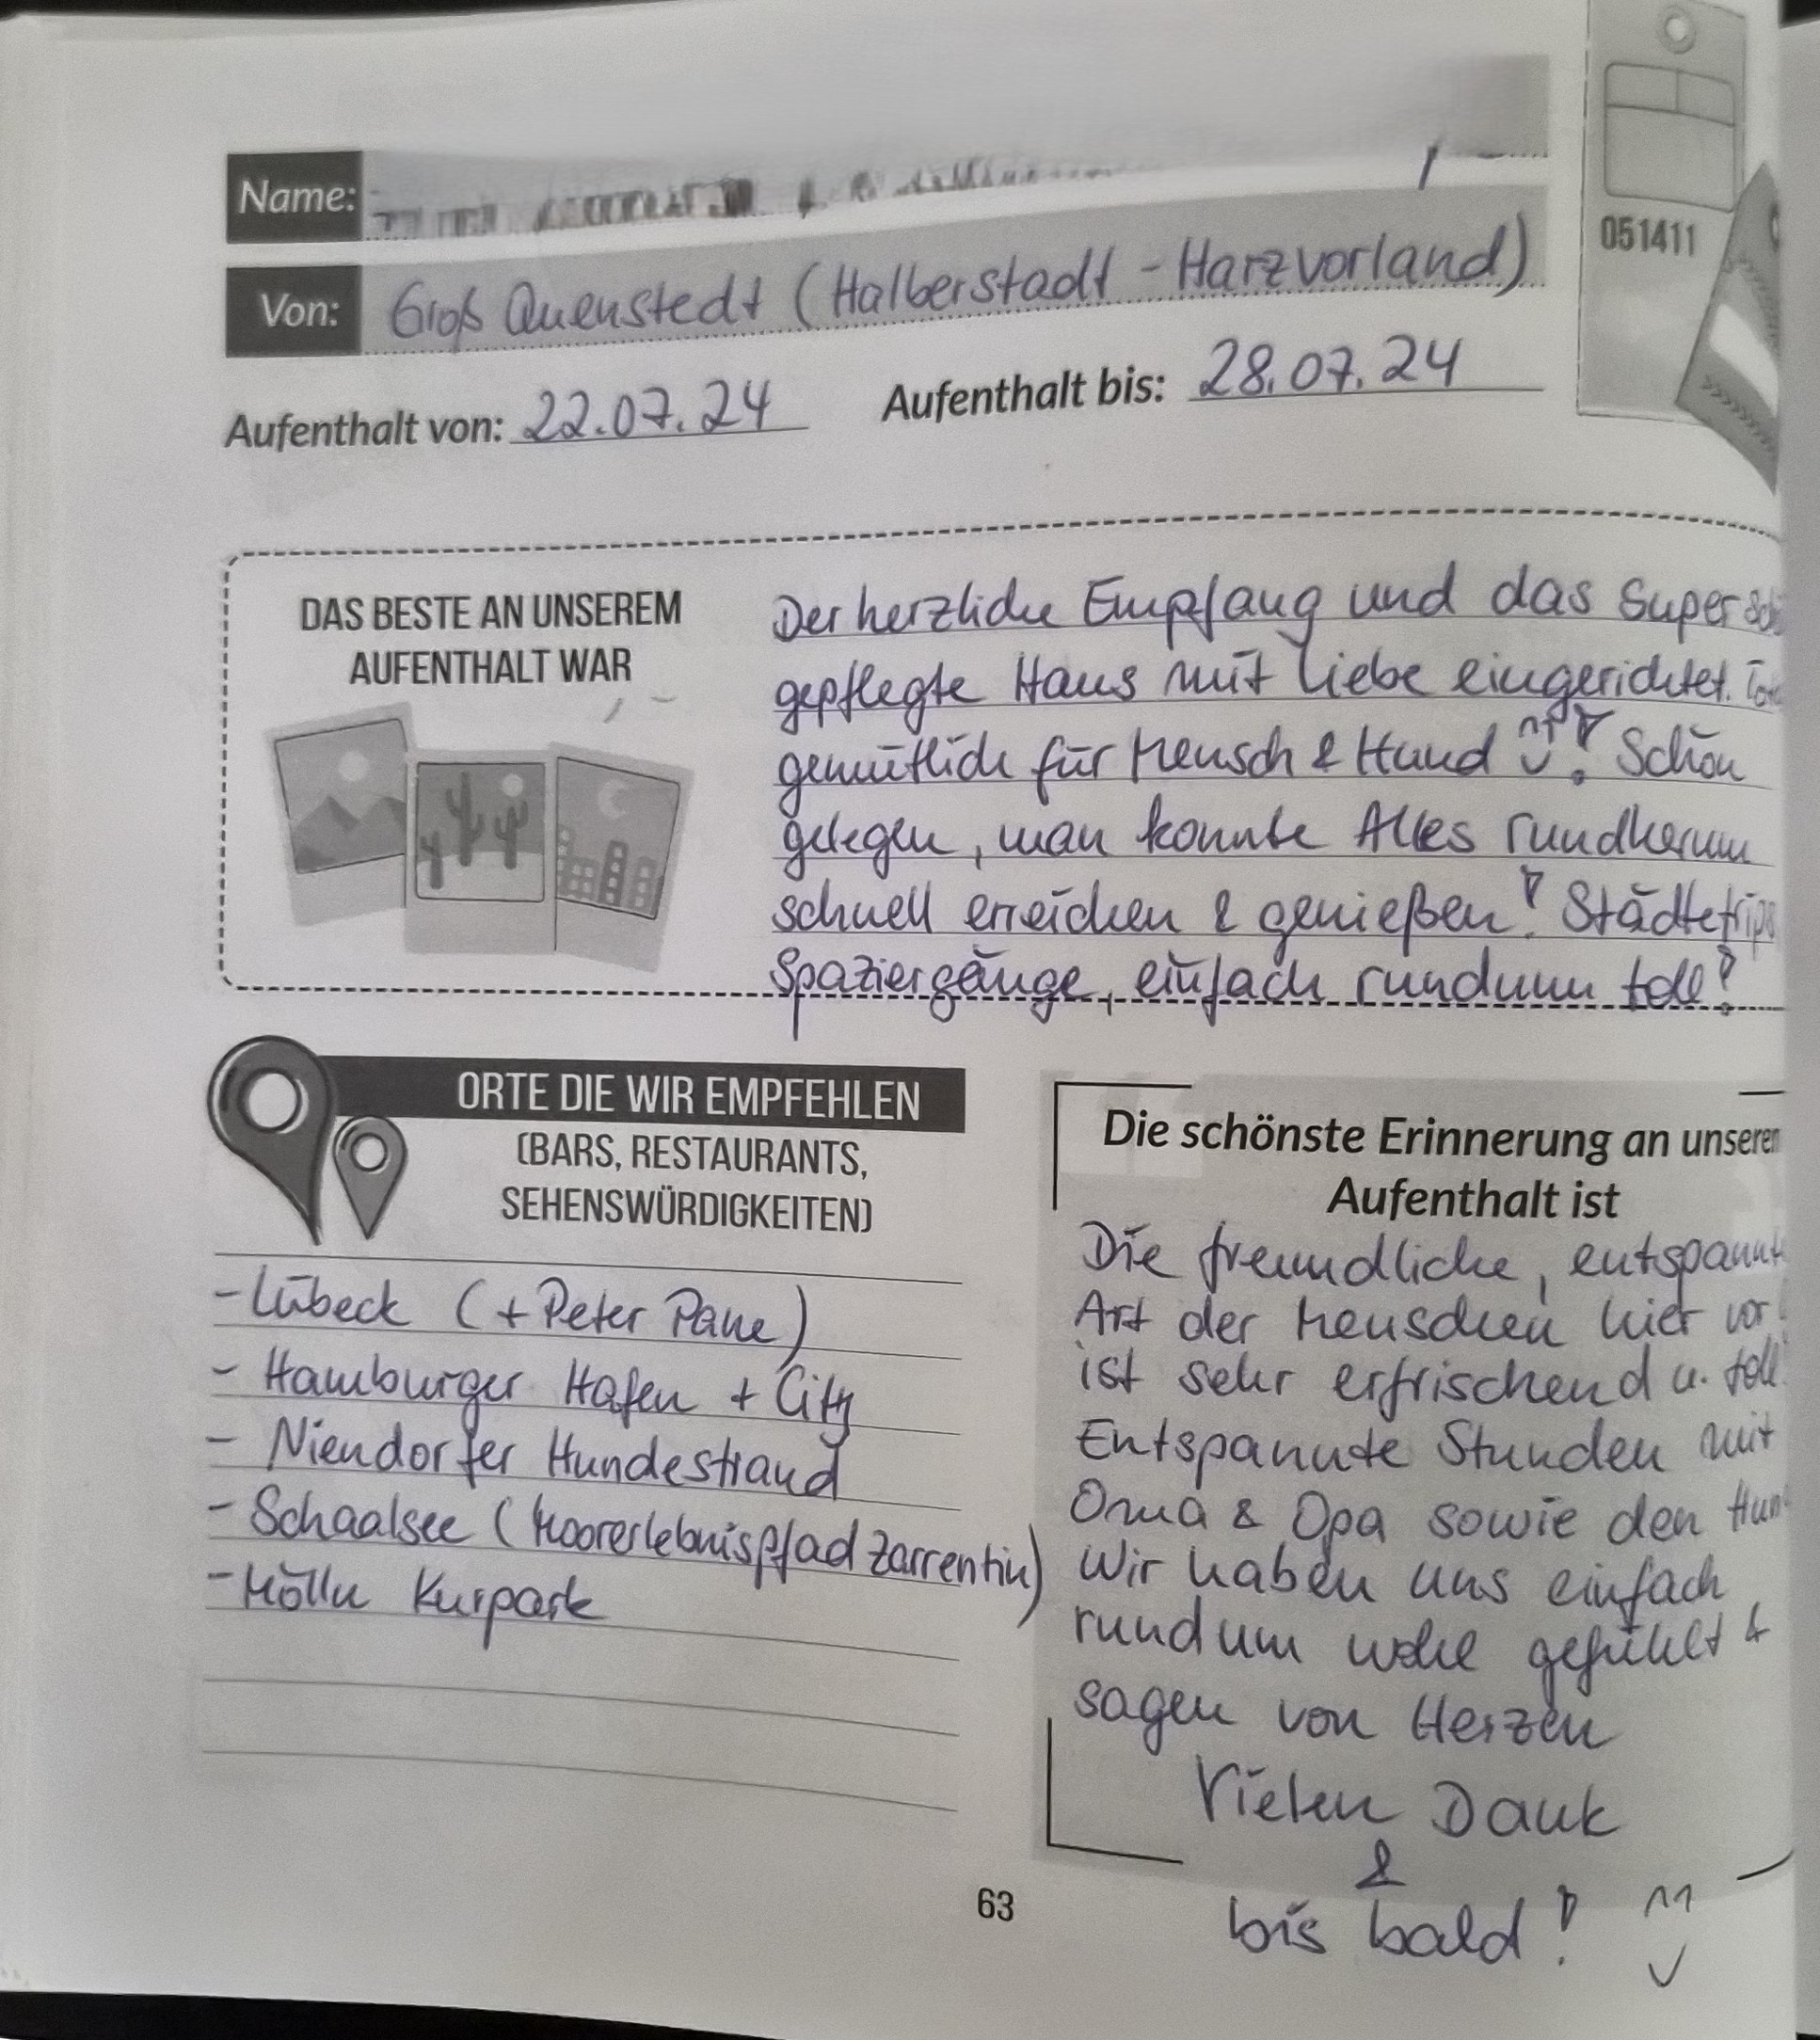 Name:
051411
Von: Groß Quenstedt (Halberstadt - Harzvorland)
Aufenthalt von: 22.07.24 Aufenthalt bis: 28.07.24
DAS BESTE AN UNSEREM
AUFENTHALT WAR
Der herzliche Empfang und das super
gepflegte Haus mit Liebe eingerichtet.
gemütlich für Mensch & Hund ! Schön
gelegen, man konnte Alles rundherum
schnell erreichen & genießen! Städtetrips
Spaziergänge, einfach rundum toll!
ORTE DIE WIR EMPFEHLEN
(BARS, RESTAURANTS,
SEHENSWÜRDIGKEITEN)
- Lübeck (+ Peter Pane)
- Hamburger Hafen + City
- Niendorfer Hundestrand
- Schaalsee (Moorerlebnispfad Zarrentin)
- Mölln Kurpark
Die schönste Erinnerung an unseren
Aufenthalt ist
Die freundliche, entspannte
Art der Menschen hier vor
ist sehr erfrischend u. toll
Entspannte Stunden mit
Oma & Opa sowie den
Wir haben uns einfach
rundum wohl gefühlt &
sagen von Herzen
Vielen Dank
&
bis bald!
63